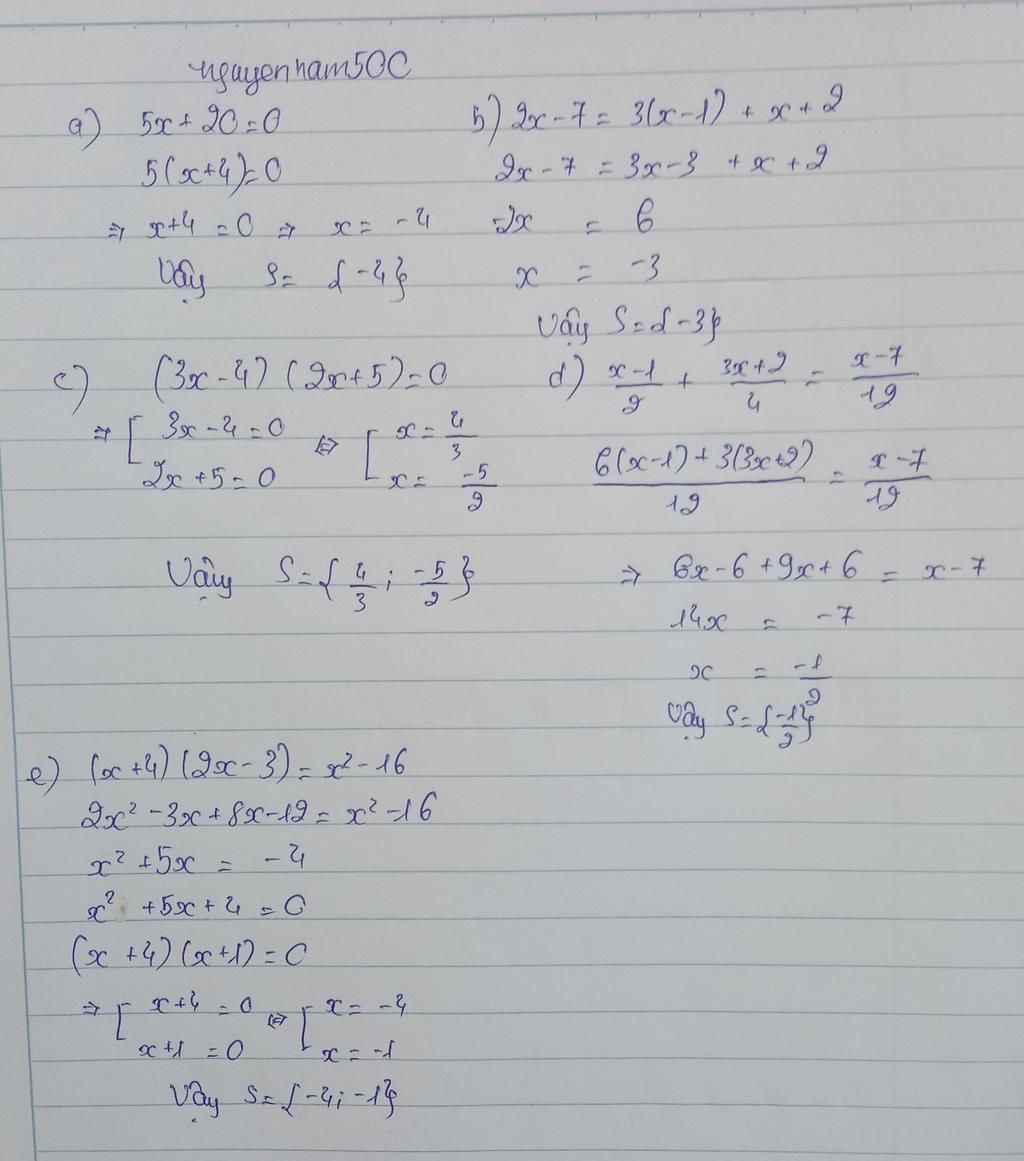 nguyennam50C
a) 5x + 20 = 0
5(x+4) = 0
⇒ x+4 = 0 ⇒ x = -4
Vậy S = {-4}
b) 2x - 7 = 3(x-1) + x + 2
2x - 7 = 3x - 3 + x + 2
-2x = 6
x = -3
Vậy S = {-3}
c) (3x - 4) (2x+5) = 0
⇒ [ 3x - 4 = 0 ⇔ [ x = 4/3
2x + 5 = 0 x = -5/2
Vậy S = {4/3 ; -5/2}
d) x-1/2 + 3x+2/4 = x-7/12
6(x-1) + 3(3x+2)/12 = x-7/12
⇒ 6x - 6 + 9x + 6 = x - 7
14x = -7
x = -1/2
Vậy S = {-1/2}
e) (x+4) (2x - 3) = x² - 16
2x² - 3x + 8x - 12 = x² - 16
x² + 5x = -4
x² + 5x + 4 = 0
(x + 4) (x+1) = 0
⇒ [ x+4 = 0 ⇔ [ x = -4
x+1 = 0 x = -1
Vậy S = {-4; -1}